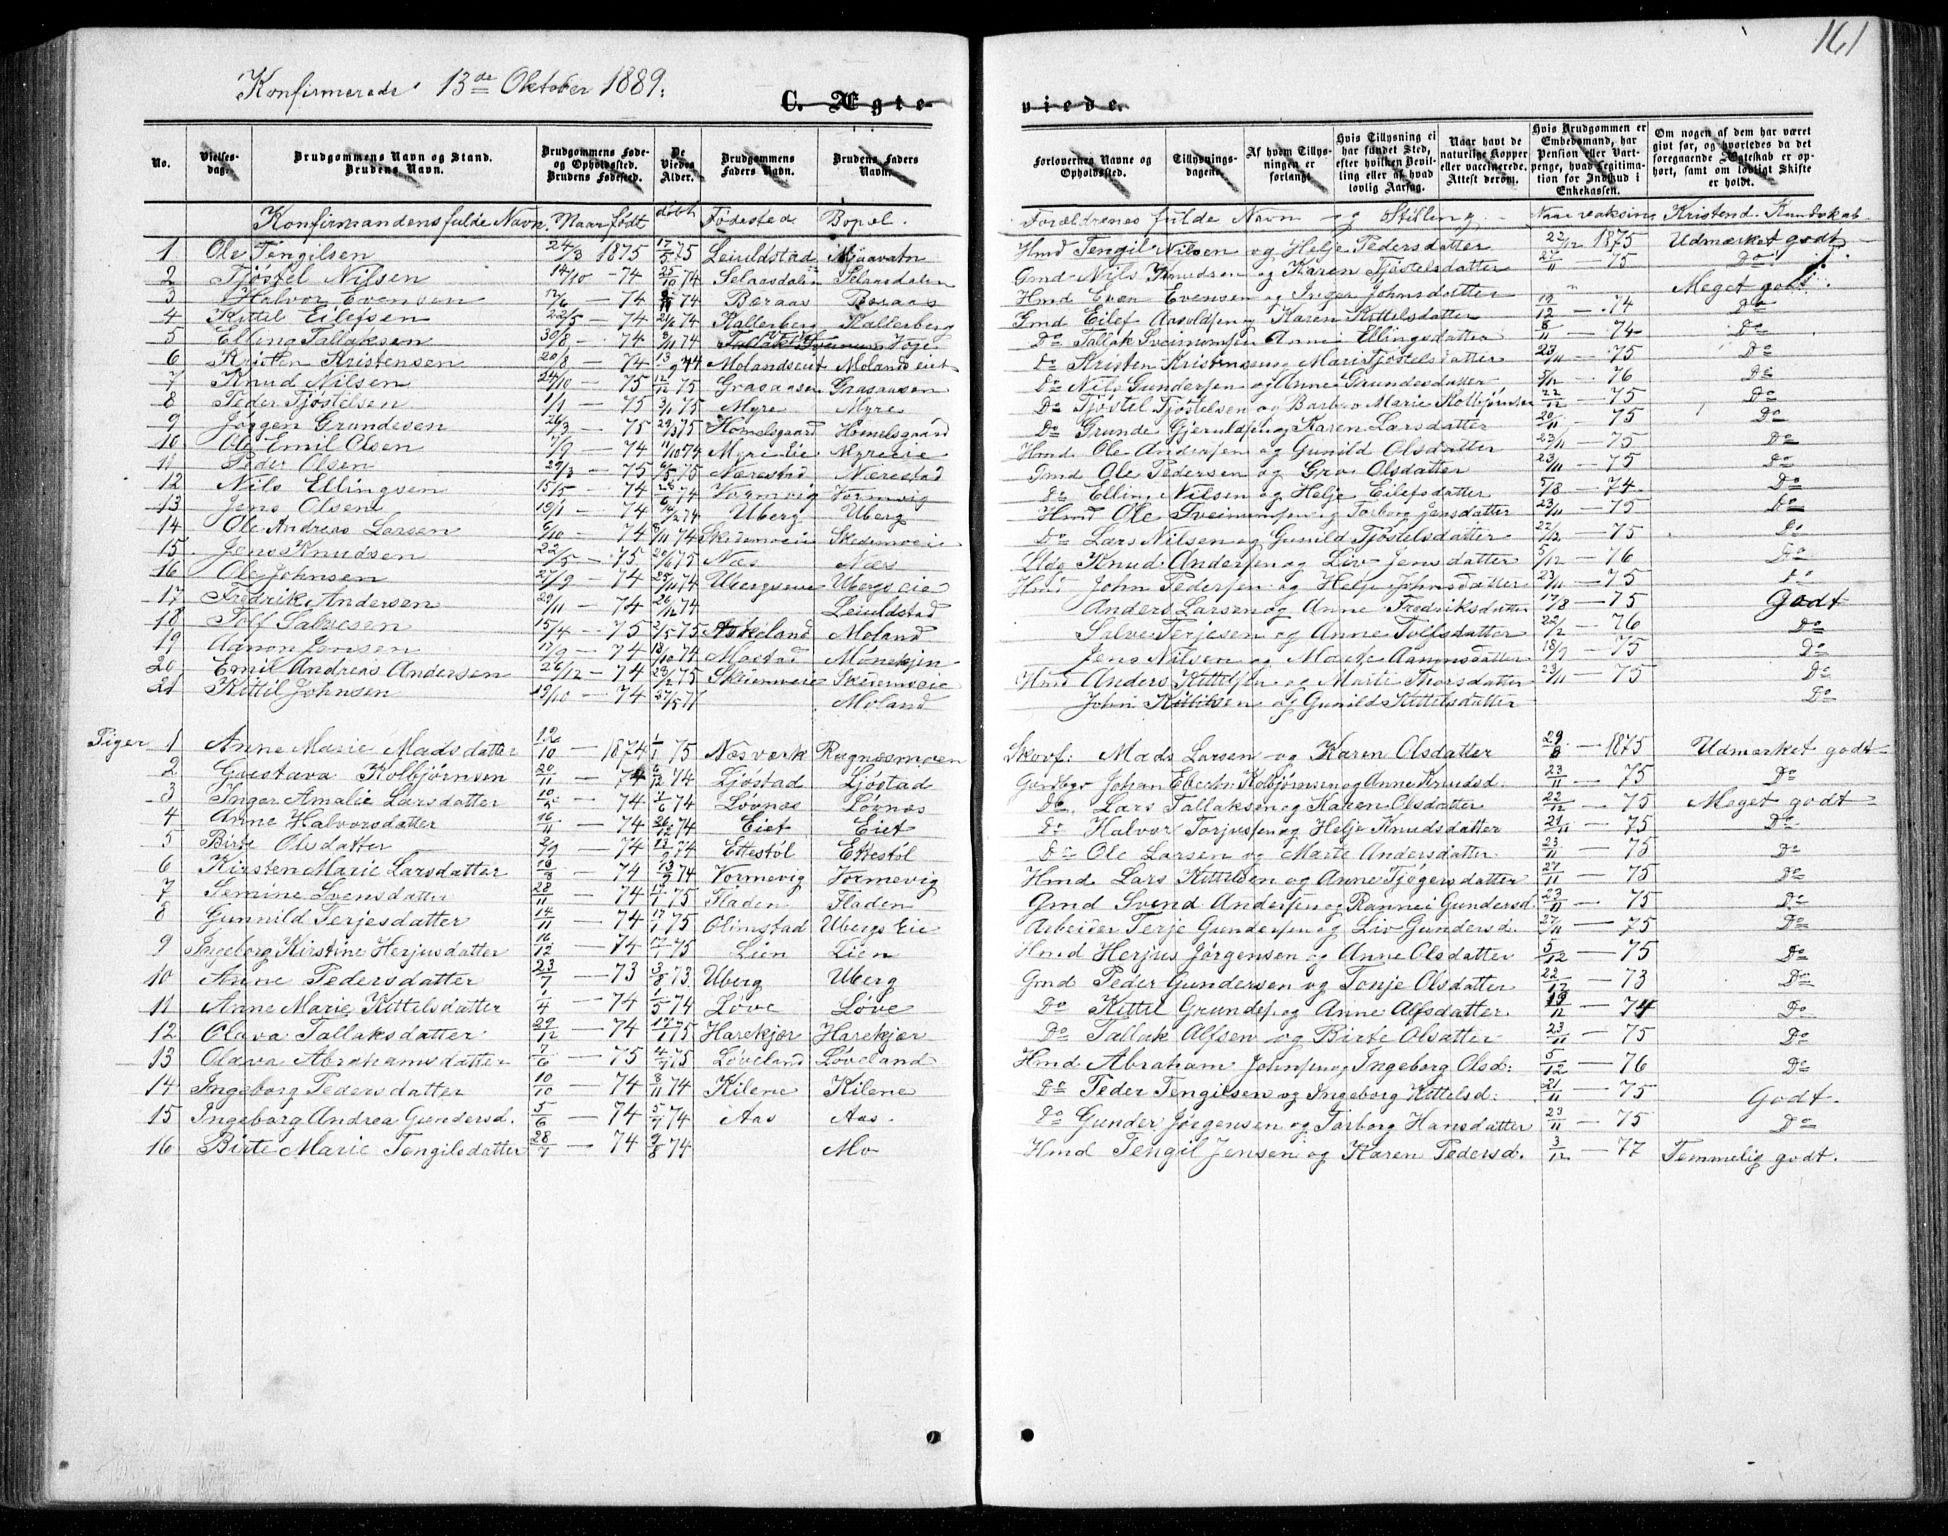 161
Konfirmerede 13de Oktober 1889.
C. Ægteviede.
No. Vielsesdag. Brudgommens Navn og Stand. Brudens Navn. Brudgommens Føde- og Opholdssted. Brudens Fødested. De Viedes Alder. Brudgommens Faders Navn. Brudens Faders Navn. Forlovernes Navne og Opholdssted. Tillysningsdagene. Af hvem Tillysningen er forlangt. Hvis Tillysning ei har fundet Sted, efter hvilken Bevilling eller af hvad lovlig Aarsag. Naar havt de naturlige Kopper eller vaccinerede. Attest derom. Hvis Brudgommen er Embedsmand, har Pension eller Vartpenge, hvad Legitimation for Indskud i Enkekassen. Om nogen af dem har været givt før, og hvorledes da det foregaaende Ægteskab er ophørt, samt om lovligt Skifte er holdt.
Konfirmandens fulde Navn. Naar født døbt Fødested Bopel. Forældrenes fulde Navn og Stilling. Naar vaksine Kristend. Kundskab
1 Ole Tengilsen 24/3 1875 17/5 75 Leiuldstad Mjaavatn Hmd Tengil Nilsen og Helje Pedersdatter 22/12 1875 Udmærket godt
2 Tjøstel Nilsen 14/10 - 74 25/10 74 Selaasdalen Selaasdalen Gmd Nils Knudsen og Karen Tjøstelsdatter 21/11 - 75 Do
3 Halvor Evensen 12/6 - 74 74 Beraas Beraas Hmd Even Evensen og Inger Johnsdatter " Meget godt.
4 Kittel Eilefsen 22/5 - 74 21/6 74 Kallerberg Kallerberg Gmd Eilef Aasoldsen og Karen Kittelsdatter 19/12 - 74 Do
5 Elling Tallaksen 30/8 - 74 74 Voje Do Tallak Sveinumsen Anne Ellingsdatter 8/11 - 74 Do
6 Kristen Kristensen 20/8 - 74 13/9 74 Molandseiet Molandseiet Do Kristen Kristensen og Maris Tjøstelsdatter 23/11 - 75 Do
7 Knud Nilsen 24/10 - 75 12/12 75 Grasaasen Grasaasen Do Nils Gundersen og Anne Grundesdatter 5/12 - 76 Do
8 Peder Tjøstelsen 1/1 - 75 3/1 75 Myre Myre Do Tjøstel Tjøstelsen og Barbro Marie Kolbjørnsen 22/12 - 75 Do
9 Jørgen Grundesen 26/3 - 75 29/3 75 Homelsgaard Homelsgaard Do Grunde Gjeruldsen og Karen Larsdatter 20/11 75 Do
10 Ole Emil Olsen 7/9 - 74 11/10 74 Myre eie Myreeie Hmd Ole Andersen og Gunild Olsdatter 23/11 - 75 Do
11 Peder Olsen 29/3 - 75 6/5 75 Nærestad Nærestad Gmd Ole Pedersen og Gro Olsdatter 23/11 - 75 Do
12 Nils Ellingsen 15/5 - 74 28/6 74 Vormvig Vormvig Do Elling Nilsen og Helje Eilefsdatter 5/8 - 74 Do
13 Jens Olsen 19/1 - 74 74 Uberg Uberg Hmd Ole Sveinumsen og Torborg Jensdatter 23/11 - 75 Do
14 Ole Andreas Larsen 6/10 - 74 8/11 74 Skedemoeie Skedemoeie Do Lars Nilsen og Gunild Tjøstelsdatter 22/12 - 75 Do
15 Jens Knudsen 22/5 - 75 20/6 75 Næs Næs Knud Andersen og Liv Jensdatter 5/12 - 76 Do
16 Ole Johnsen 27/9 - 74 25/10 74 Ubergseie Ubergs eie Hmd John Pedersen og Helje Johnsdatter 23/11 - 75 Do
17 Fredrik Andersen 29/11 - 74 26/12 74 Leiuldstad Anders Larsen og Anne Fredriksdatter 17/8 - 75 Godt
18 Tolf Salvesen 15/4 - 75 2/5 75 Askeland Moland Salve Terjesen og Anne Tolfsdatter 22/12 - 76 Do
19 Aanon Jensen 17/9 - 74 18/10 74 Mostad Monekjen Jens Nilsen og Marte Aanonsdatter 18/9 - 75 Do
20 Emil Andreas Andersen 26/12 - 74 28/2 75 Skiermoeie Skiermoeie Hmd Anders Kittelsen og Marte Thorsdatter 23/11 - 75 Do
21 Kittil Johnsen 19/10 - 74 27/5 77 Moland John Kittilsen og Gunild Kittelsdatter Do
Piger 1 Anne Marie Madsdatter 12/10 - 1874 1/1 75 Næsverk Ragnesmoen Skovf. Mads Larsen og Karen Olsdatter 29/8 - 1875 Udmærket godt
2 Gustava Kolbjørnsen 20/11 - 74 6/12 74 Ljøstad Ljøstad Gaardbgr Johan Ebertn Kolbjørnsen og Anne Knudsd. 23/11 - 75 Do
3 Inger Amalie Larsdatter 10/5 - 74 7/6 74 Løvnæs Løvnæs Do Lars Tallaksen og Karen Olsdatter 22/12 - 75 Meget godt
4 Anne Halvorsdatter 16/11 - 74 26/12 74 Eiet Eiet Do Halvor Torjusen og Helje Knudsdatter 21/11 - 75 Do
5 Birte Olsdatter 2/9 - 74 13/9 74 Ettestøl Ettestøl Do Ole Larsen og Marte Andersdatter 23/11 - 75 Do
6 Kirsten Marie Larsdatter 16/8 - 74 13/9 74 Vormevig Vormevig Hmd Lars Kittelsen og Anne Tjøgersdatter 27/11 - 75 Do
7 Semine Svensdatter 28/11 - 74 17/1 75 Fladen Fladen Gmd Svend Andersen og Rannei Gundersd 23/11 - 75 Do
8 Gunnild Terjesdatter 14/11 - 74 17/1 75 Olimstad Ubergs Eie Arbeider Terje Gundersen og Liv Gundersd. 27/11 - 75 Do
9 Ingeborg Kirstine Herjusdatter 16/12 - 74 17/1 75 Lien Lien Hmd Herjus Jørgensen og Anne Olsdatter 5/12 - 75 Do
10 Anne Pedersdatter 23/7 - 73 3/8 73 Uberg Uberg Gmd Peder Gundersen og Tonje Olsdatter 22/12 - 73 Do
11 Anne Marie Kittelsdatter 4 - 74 1/5 74 Løve Løve Do Kittel Grundesen og Anne Alfsdatter. 19/12 - 74 Do
12 Olava Tallaksdatter 29/12 - 74 17/1 75 Harekjær Harekjær Do Tallak Alfsen og Birte Olsdatter 23/11 - 75 Do
13 Olava Abrahamsdatter 7/6 - 75 4/7 75 Løveland Løveland Hmd Abraham Johnsen og Ingeborg Olsd: 5/12 - 76 Do
14 Ingeborg Pedersdatter 10/10 - 74 8/11 74 Kilene Kilene Do Peder Tengilsen og Ingeborg Kittelsd: 21/11 - 75 Godt.
15 Ingeborg Andrea Gundersd. 5/6 - 74 5/7 74 Aas Aas. Do Gunder Jørgensen og Torborg Hansdatter 23/11 - 75 Do
16 Birte Marie Tengilsdatter 28/7 - 74 9/8 74 Mo Hmd Tengil Jensen og Karen Pedersd. 3/12 - 77 Temmelig godt.